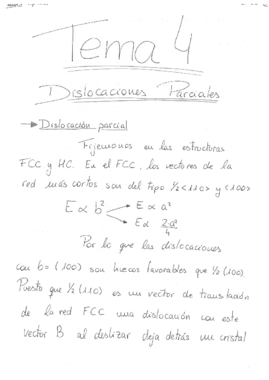 Tema 4
Dislocaciones Parciales
→ Dislocación parcial
Fijemonos en las estructuras
FCC y HC. En el FCC, los vectores de la
red más cortos son del tipo 1/2<110> y <100>
E ∝ b² → E ∝ a²
→ E ∝ 2·a²/4
Por lo que las dislocaciones
con b = (100) son menos favorables que 1/2 (110)
Puesto que 1/2 (110) es un vector de translación
de la red FCC una dislocación con este
vector B al deslizar deja detrás un cristal